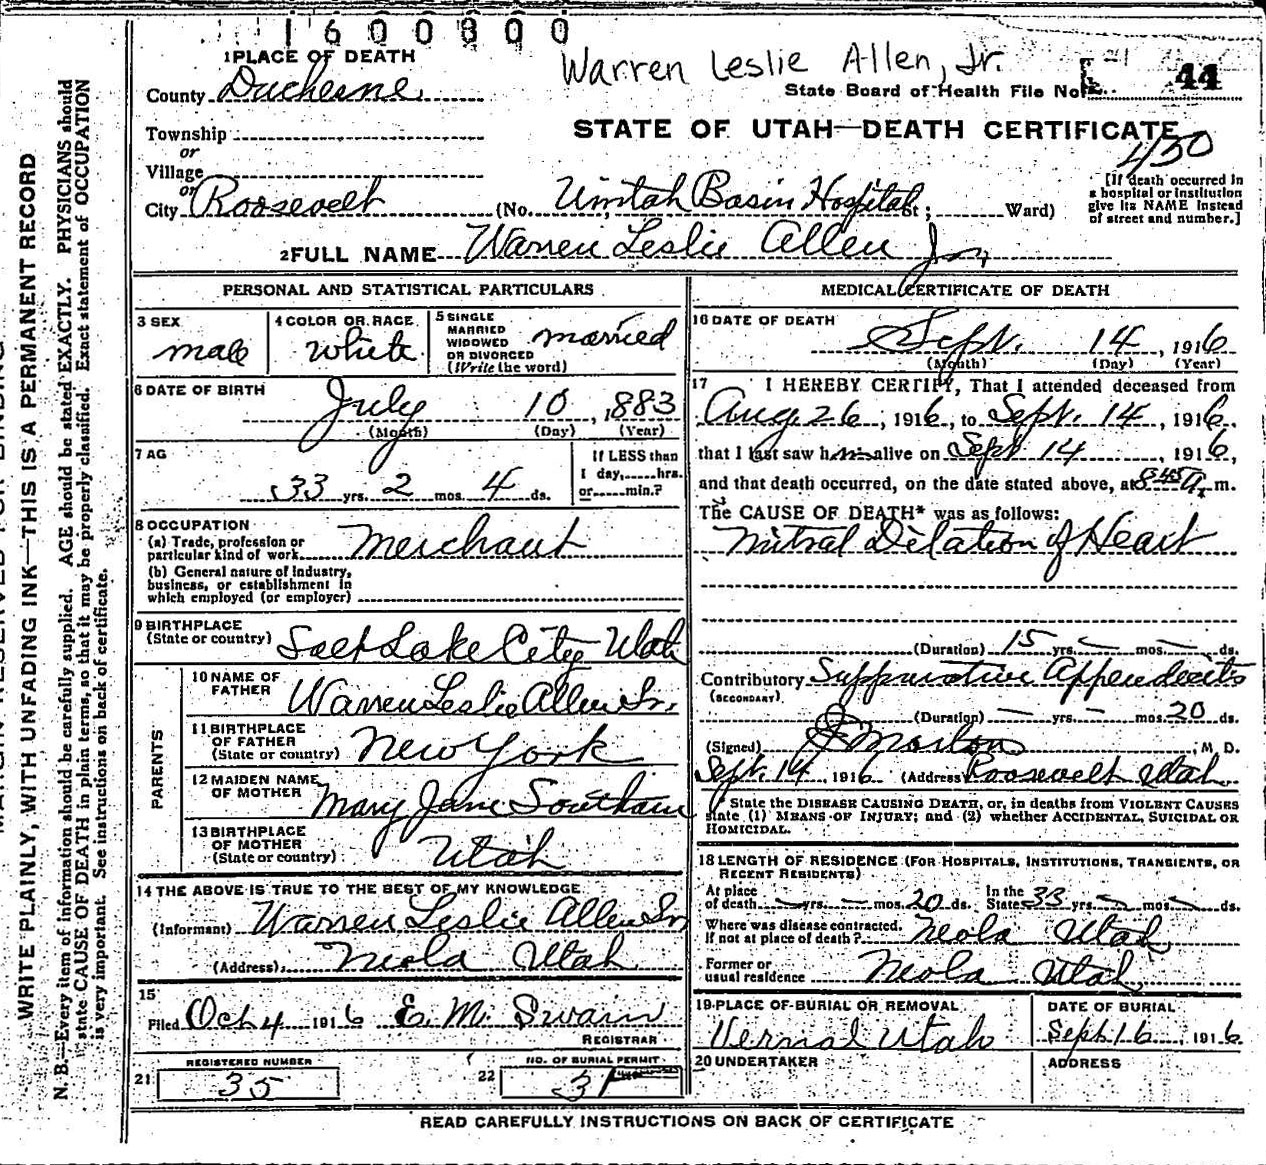 1600300
1 PLACE OF DEATH
Warren Leslie Allen, Jr.
County Duchesne
State Board of Health File No. 44
Township
or
STATE OF UTAH—DEATH CERTIFICATE
430
Village
or
City Roosevelt (No. Uintah Basin Hospital St; Ward)
[If death occurred in
a hospital or institution
give its NAME instead
of street and number.]
2 FULL NAME Warren Leslie Allen Jr.
PERSONAL AND STATISTICAL PARTICULARS
3 SEX male
4 COLOR OR RACE white
5 SINGLE
MARRIED
WIDOWED
OR DIVORCED
(Write the word) married
6 DATE OF BIRTH
July 10, 1883
(Month) (Day) (Year)
7 AG
33 yrs. 2 mos. 4 ds.
If LESS than
1 day, hrs.
or min.?
8 OCCUPATION
(a) Trade, profession or
particular kind of work Merchant
(b) General nature of Industry,
business, or establishment in
which employed (or employer)
9 BIRTHPLACE
(State or country) Salt Lake City Utah
PARENTS'
10 NAME OF
FATHER Warren Leslie Allen Sr.
11 BIRTHPLACE
OF FATHER
(State or country) New York
12 MAIDEN NAME
OF MOTHER Mary Jane Southam
13 BIRTHPLACE
OF MOTHER
(State or country) Utah
14 THE ABOVE IS TRUE TO THE BEST OF MY KNOWLEDGE
(Informant) Warren Leslie Allen Sr
(Address) Neola Utah
15
Filed Oct 4 1916 E. M. Swain
REGISTRAR
REGISTERED NUMBER
21 35
NO. OF BURIAL PERMIT
22 31
MEDICAL CERTIFICATE OF DEATH
16 DATE OF DEATH
Sept. 14, 1916
(Month) (Day) (Year)
17 I HEREBY CERTIFY, That I attended deceased from
Aug. 26, 1916, to Sept. 14, 1916,
that I last saw him alive on Sept 14, 1916,
and that death occurred, on the date stated above, at 8:45 A. m.
The CAUSE OF DEATH* was as follows:
Mitral Dilation of Heart
(Duration) 15 yrs. — mos. — ds.
Contributory Suppurative Appendecits
(SECONDARY)
(Duration) — yrs. — mos. 20 ds.
(Signed) Morton, M. D.
Sept. 14, 1916 (Address) Roosevelt Utah
* State the DISEASE CAUSING DEATH, or, in deaths from VIOLENT CAUSES
state (1) MEANS OF INJURY; and (2) whether ACCIDENTAL, SUICIDAL OR
HOMICIDAL.
18 LENGTH OF RESIDENCE (FOR HOSPITALS, INSTITUTIONS, TRANSIENTS, OR
RECENT RESIDENTS)
At place
of death — yrs. — mos. 20 ds.
In the
State 33 yrs. — mos. — ds.
Where was disease contracted,
If not at place of death? Neola Utah
Former or
usual residence Neola Utah
19 PLACE OF BURIAL OR REMOVAL
Vernal Utah
DATE OF BURIAL
Sept 16, 1916
20 UNDERTAKER
ADDRESS
READ CAREFULLY INSTRUCTIONS ON BACK OF CERTIFICATE
WRITE PLAINLY, WITH UNFADING INK—THIS IS A PERMANENT RECORD
N. B.—Every item of information should be carefully supplied. AGE should be stated EXACTLY. PHYSICIANS should
state CAUSE OF DEATH in plain terms, so that it may be properly classified. Exact statement of OCCUPATION
is very important. See instructions on back of certificate.